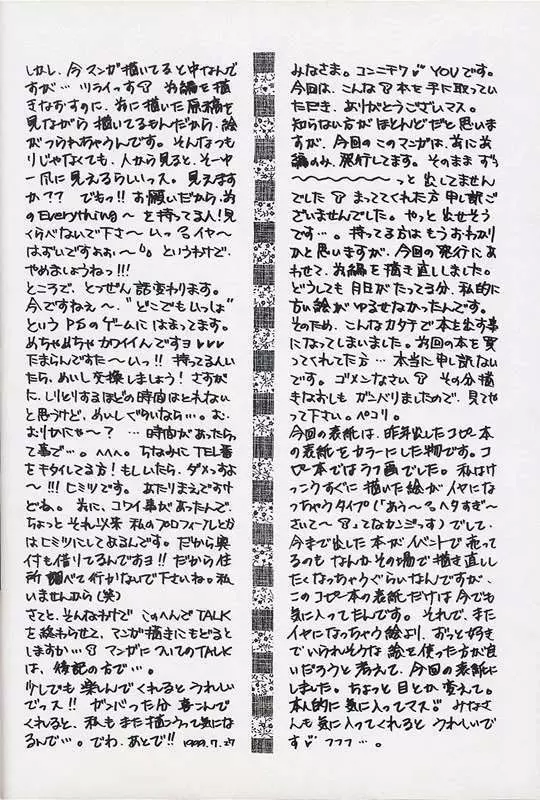 みなさま。コンニチワ♥YOUです。
今回は、こんな本を手に取っていただき、ありがとうございマス。
知らない方がほとんどだと思いますが、今回のこのマンガは、前に前編のみ、発行してます。そのまま ずぅ
〜〜〜〜〜〜〜っと 出してません
でした まってくれてた方 申し訳ご
ざいませんでした。やっと 出せそう
です…。持ってる方はもうおわかり
かと思いますが、今回の発行にあ
わせて、前編を描き直ししました。
どうしても 月日がたってる分、私的に
古い絵が ゆるせなかったんです。
そのため、こんなカタチで本を出す事
になってしまいました。前回の本を買
ってくれてた方… 本当に申し訳ない
です。ゴメンなさい その分描
きなおしも ガンバりましたので、見てや
って下さい。ペコリ。
今回の表紙は、昨年出したコピー本
の表紙をカラーにした物です。コ
ピー本では 画でした。私はけ
っこうすぐに描いた絵がイヤにな
っちゃうタイプ(「あぅ〜 ヘタすぎ〜
さいて〜」ってなカンジっす)でして、
今まで出した本がイベントで売って
るのも なんか その場で描き直し
たくなっちゃうぐらいなんですが、
このコピー本の表紙だけは今でも
気に入ってたんです。それで、また
イヤになっちゃう絵より、ずっと好き
でいられそうな 絵を使った方が良
いだろうと考えて、今回の表紙に
しました。ちょっと 目とか変えて。
本人的に気に入ってマス♥ みなさ
んも気に入ってくれると うれしいで
す♥ フフフ…。
しかし、今マンガ描いてると中なんで
すが… ツライっす 前編を描
きなおすのに、前に描いた原稿を
見ながら 描いてるもんだから、絵
がつられちゃうんです。そんなつも
りじゃなくても、人から見ると、そー中
一爪に見えるらしいっス。見えます
か?? でもっ!! お願いだから、前
のEverything〜を持ってる人!見
くらべないで下さ〜いっ イヤ〜
はずいですょぉぉ〜 というわけで、
やめましょうねっ!!!
ところで、とつぜん話変わります。
今ですねぇ〜、"どこでもいっしょ"
という PSのゲームに はまってます。
めちゃめちゃ カワイイんですョ♥♥♥
たまらんですた〜いっ!! 持ってる人い
たら、めいし交換しましょう! さすが
に、しりとりするほどの時間はとれない
と思うけど、めいしぐらいなら…。お、
おりかにゃ〜? …時間があったら
って事で…。へへへ。ちなみに TEL番
をキタイしてる方! もしいたら、ダメっすよ
〜!!! ヒミツです。あたりまえですけ
どね。前に、コワイ事があったんで、
ちょっと それ以来 私のプロフィールとか
はヒミツにしてあるんです。だから奥
付も借りてるんですョ!! だから住
所 調べて行かないで下さいねっ 私
いませんから(笑)
さてと、そんなわけで このへんでTALK
を終わらせて、マンガ描きにもどると
しますか… マンガについてのTALK
は、後記の方で…。
少しでも 楽んでくれると うれしい
でっス!! ガンバった分 喜こんで
くれると、私もまた描こうって気にな
るんで…。でわ、あとで!! 1999.7.27